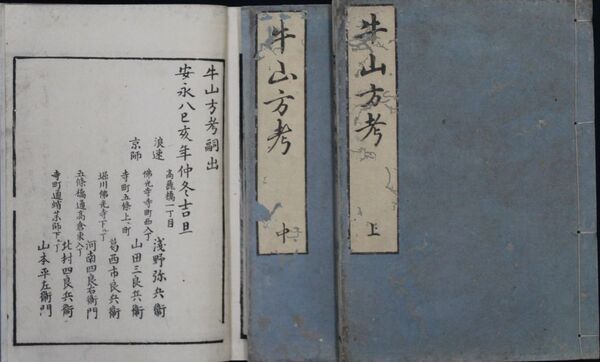 牛山方考
上
牛山方考
中
牛山方考嗣出
安永八己亥年仲冬吉旦
浪速
高麗橋一丁目
淺野弥兵衞
京師
佛光寺寺町西入丁
山田三良兵衞
寺町五條上ル町
葛西市良兵衞
堀川佛光寺下ル丁
河南四良右衞門
五條橋通高倉東入丁
北村四良兵衞
寺町通蛸薬師下ル丁
山本平左衞門